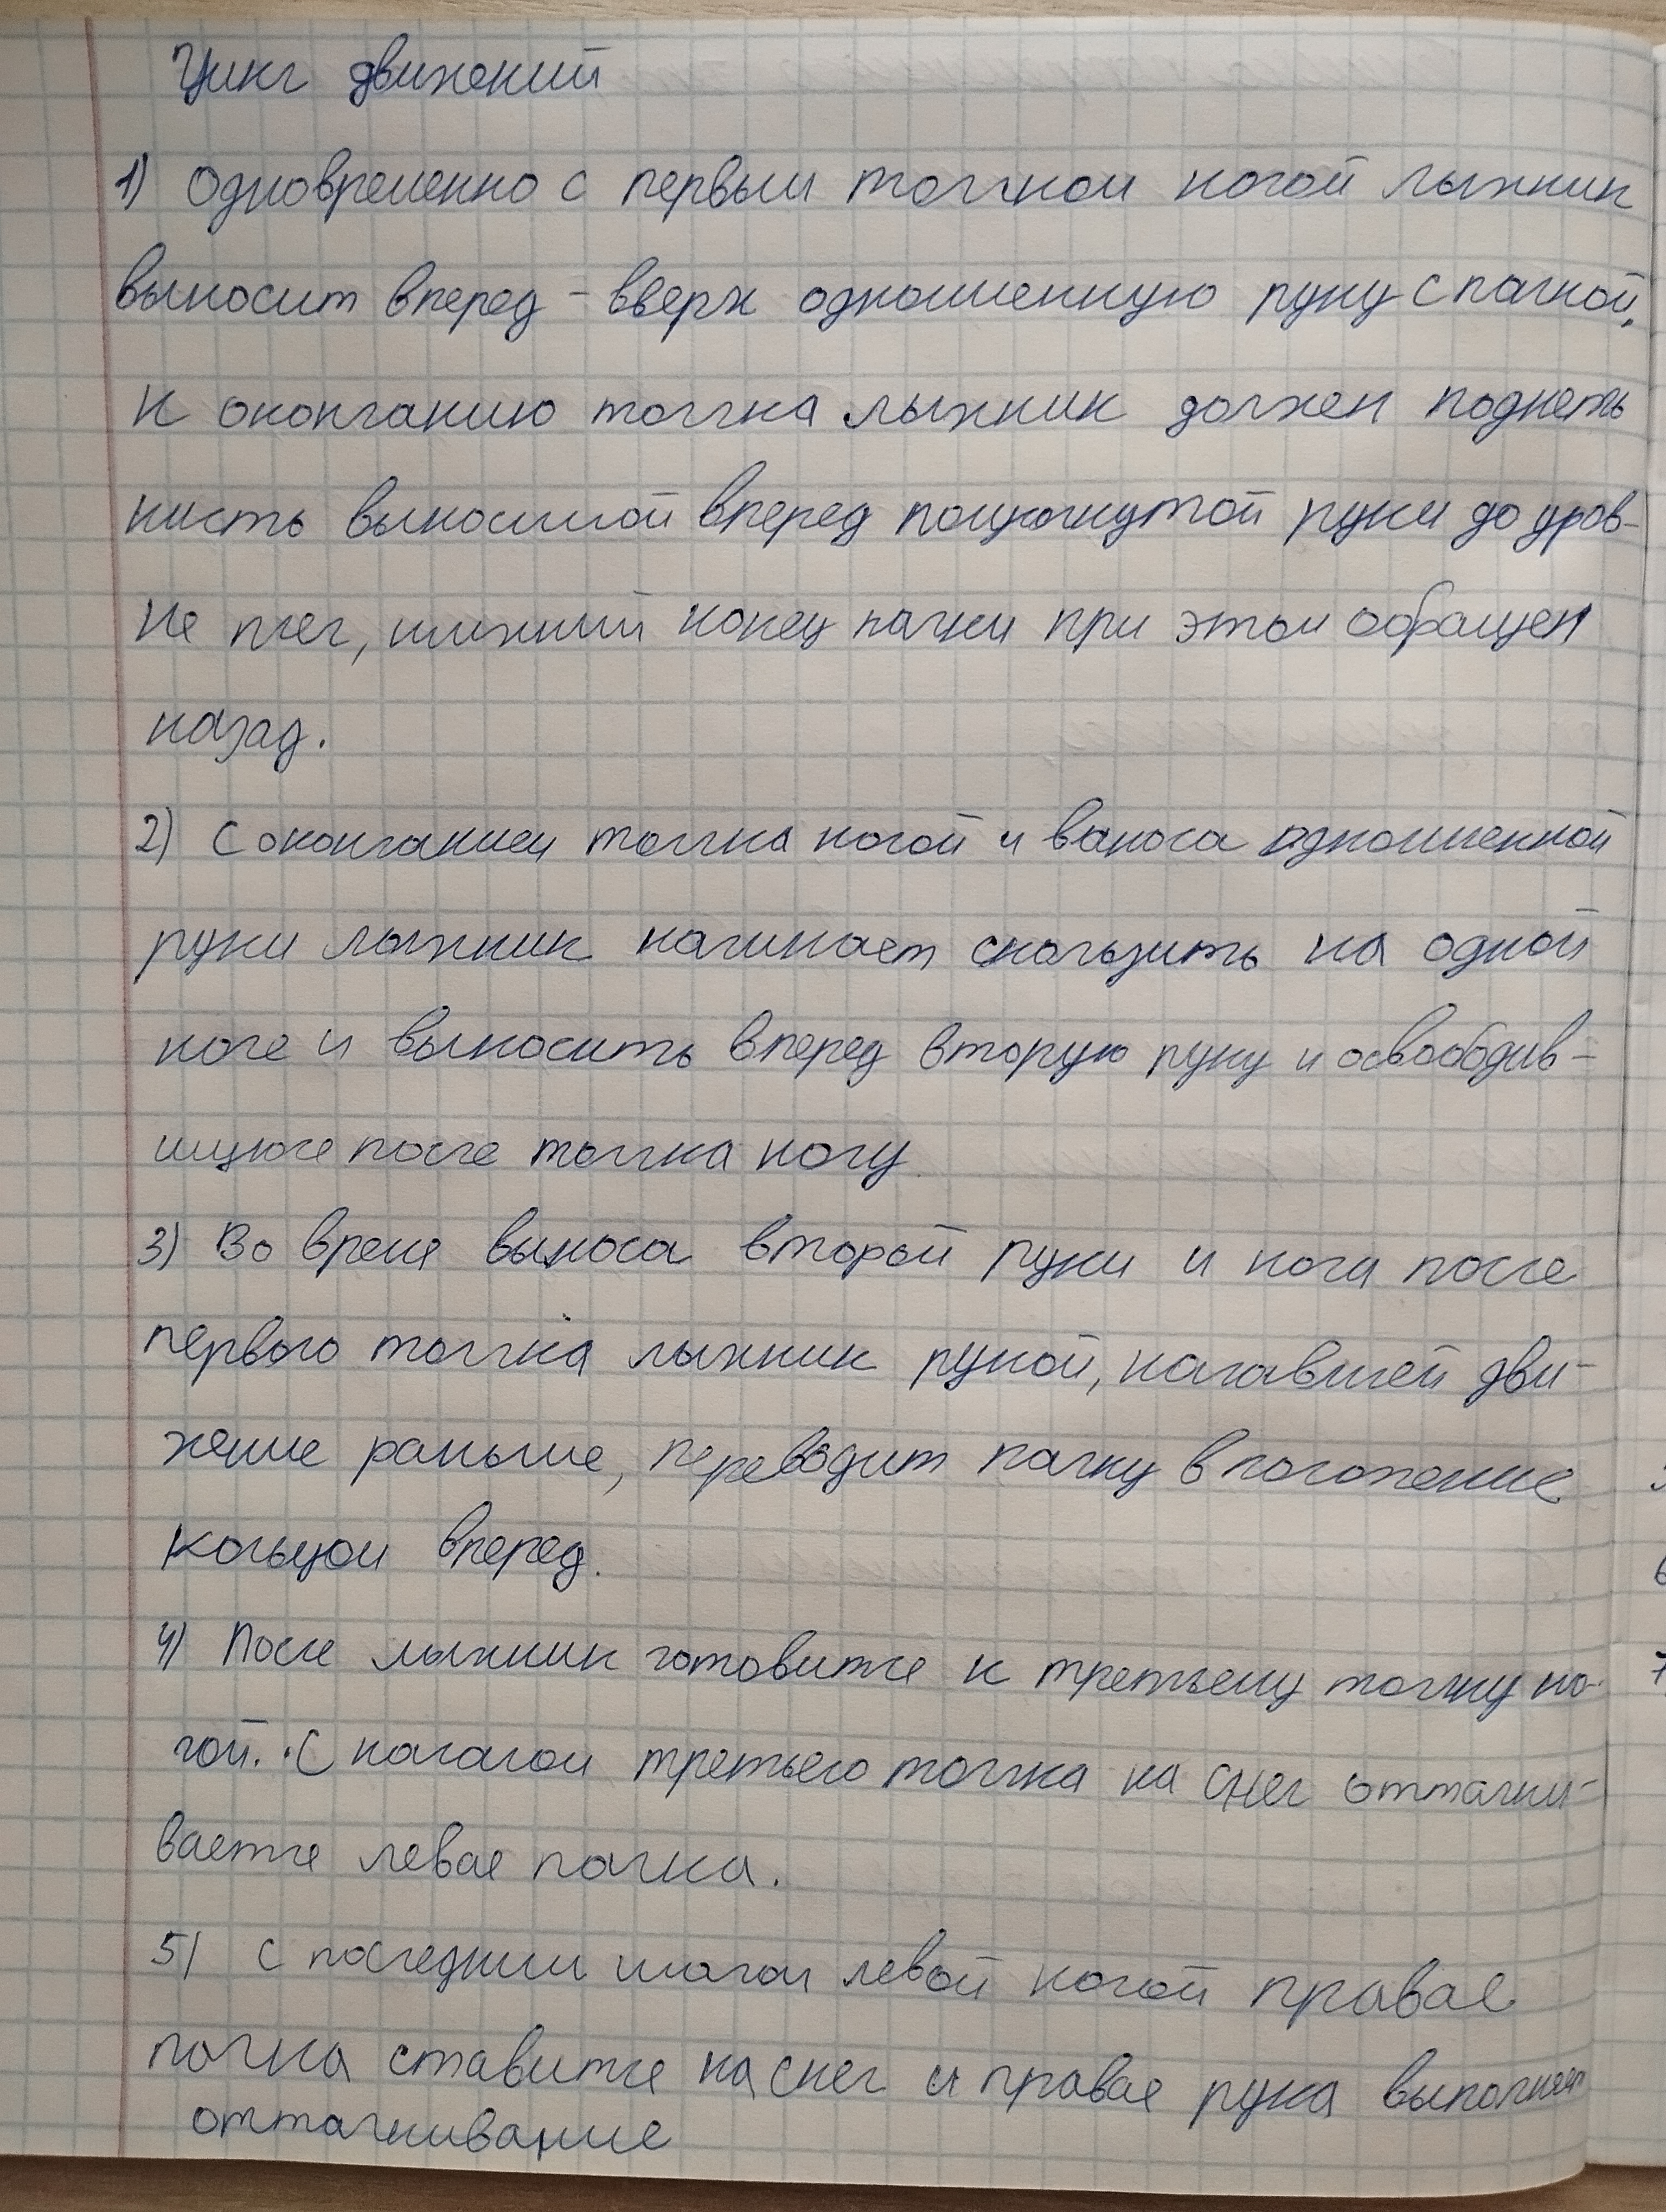 Цикл движений
1) Одновременно с первым толчком ногой лыжник
выносит вперед - вверх одноименную руку с палкой.
К окончанию толчка лыжник должен поднять
кисть выносимой вперед полусогнутой руки до уров-
ня плеч, нижний конец палки при этом обращен
назад.
2) С окончанием толчка ногой и выноса одноименной
руки лыжник начинает скользить на одной
ноге и выносить вперед вторую руку и освободив-
шуюся после толчка ногу
3) Во время выноса второй руки и нога после
первого толчка лыжник рукой, начавшей дви-
жение раньше, переводит палку в положение
кольцом вперед.
4) После лыжник готовится к третьему толчку но-
гой. С началом третьего толчка на снег отталки-
вается левая палка.
5) С последним шагом левой ногой правая
палка ставится на снег и правая рука выполняет
отталкивание